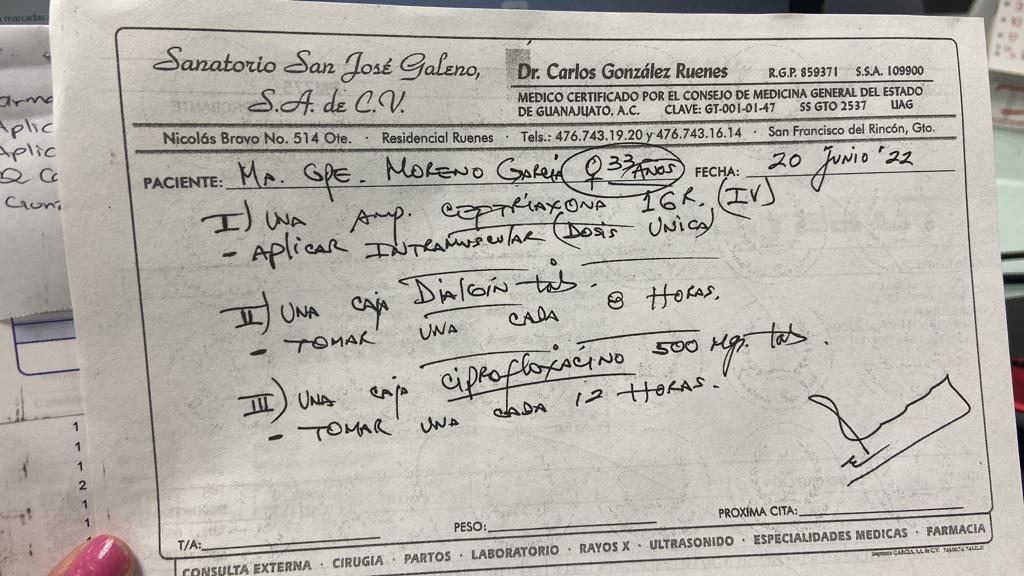 marcadas
Aplic
Aplic
Sanatorio San José Galeno,
S.A. de C.V.
Dr. Carlos González Ruenes R.G.P. 859371 S.S.A. 109900
MEDICO CERTIFICADO POR EL CONSEJO DE MEDICINA GENERAL DEL ESTADO
DE GUANAJUATO, A.C. CLAVE: GT-001-01-47 SS GTO 2537 UAG
Nicolás Bravo No. 514 Ote. · Residencial Ruenes · Tels.: 476.743.19.20 y 476.743.16.14 · San Francisco del Rincón, Gto.
PACIENTE: MA. GPE. MORENO GARCÍA ♀ 33 AÑOS FECHA: 20 JUNIO '22
I) UNA AMP. CEFTRIAXONA 1GR. (IV)
- APLICAR INTRAMUSCULAR (DOSIS UNICA)
II) UNA CAJA tab.
- TOMAR UNA CADA 8 HORAS.
III) UNA CAJA CIPROFLOXACINO 500 Mg. tab.
- TOMAR UNA CADA 12 HORAS.
1
1
1
2
1
1
PROXIMA CITA:
PESO:
T/A:
CONSULTA EXTERNA · CIRUGIA · PARTOS · LABORATORIO · RAYOS X · ULTRASONIDO · ESPECIALIDADES MEDICAS · FARMACIA